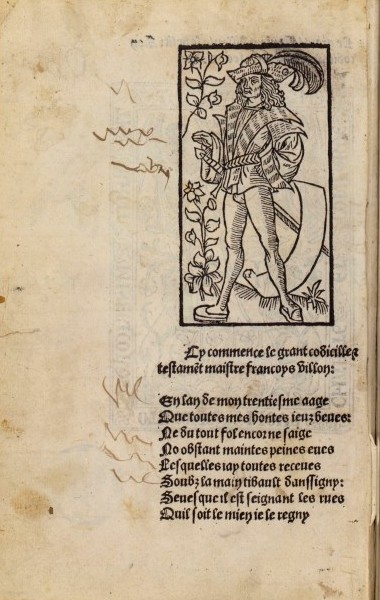 Cy commence le grant codicille &
testament maistre francoys villon:
En lan de mon trentiesme aage
Que toutes mes hontes ieuz beues:
Ne du tout fol encor ne saige
No obstant maintes peines eues
Lesquelles iay toutes receues
Soubz la main tibault danssigny:
Seuesque il est seignant les rues
Quil soit le mien ie le regny